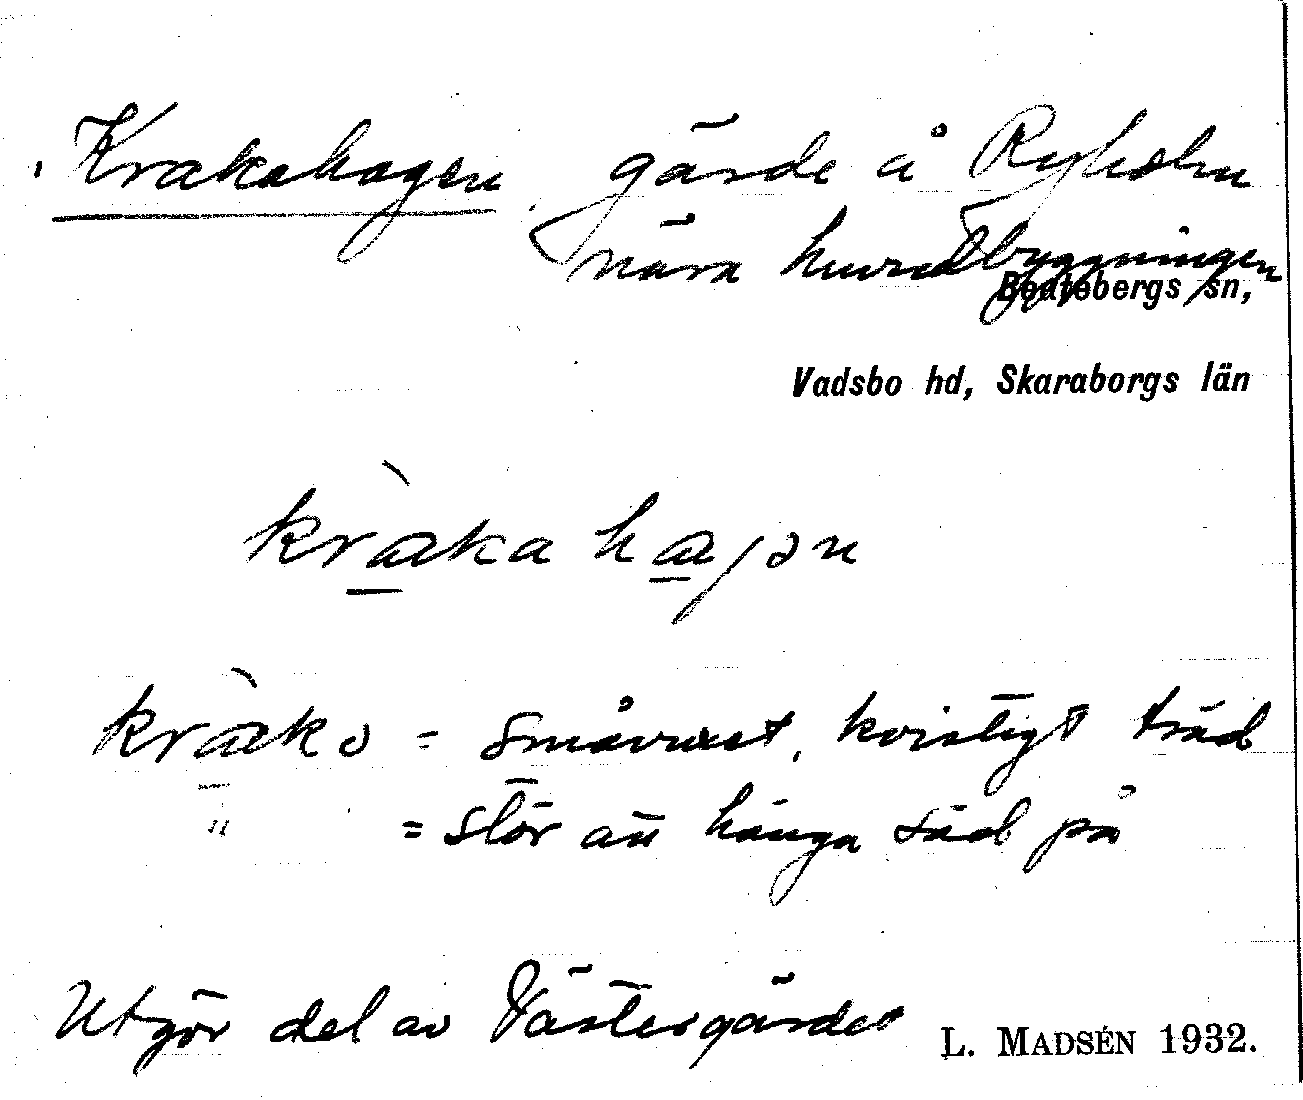 Krakahagen, gärde å Ryholm
nära huvudbyggningen
Beatebergs sn,
Vadsbo hd, Skaraborgs län
kràkahaɡən
kràko = småvuxet, kvistigt träd
" = stör att hänga säd på
Utgör del av Västergärdet
L. MADSÉN 1932.